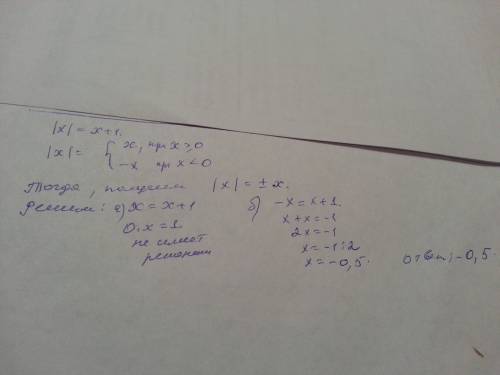 |x| = x+1.
|x| = { x, при x ≥ 0
-x при x < 0
Тогда, получаем |x| = ± x.
Решим: а) x = x+1
0·x = 1
не имеет
решения
б) -x = x+1.
x+x=-1
2x=-1
x=-1:2
x=-0,5.
ответ: -0,5.